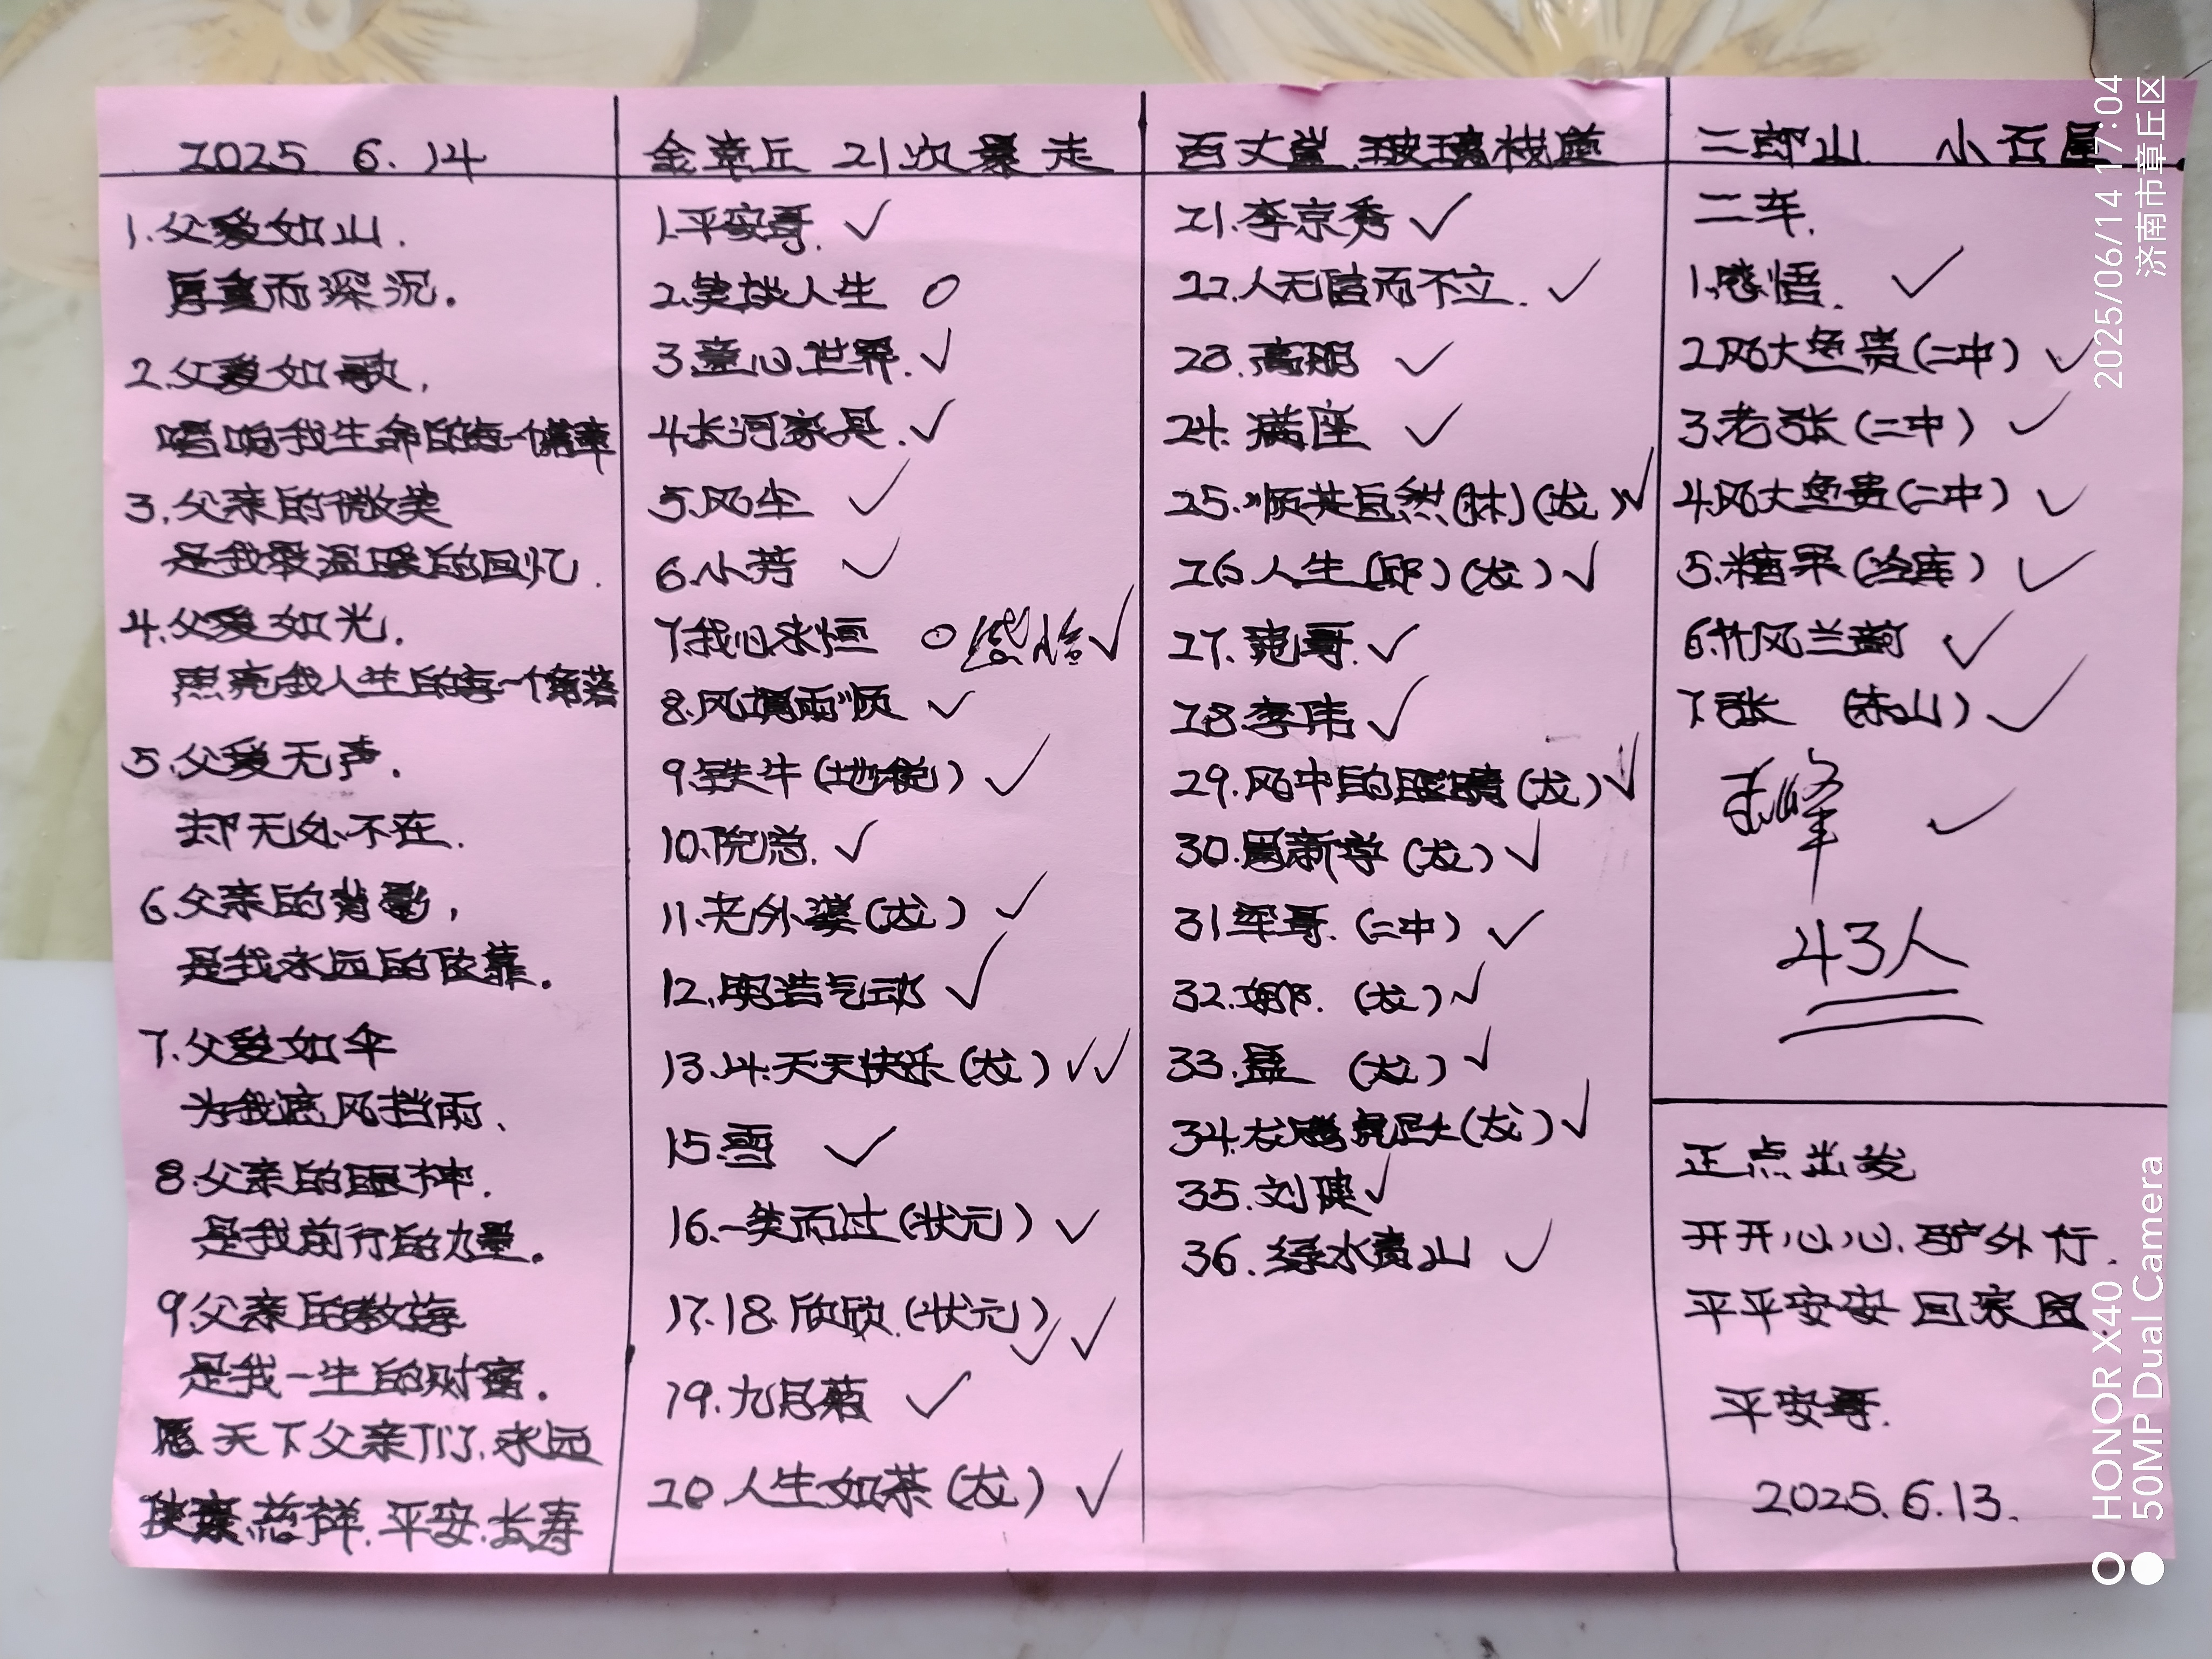 2025 6.14
1.父爱如山.
厚重而深沉.
2.父爱如歌,
唱响我生命的每一个篇章
3.父亲的微笑
是我最温暖的回忆.
4.父爱如光.
照亮我人生的每一个角落
5.父爱无声.
却无处不在.
6.父亲的背影,
是我永远的依靠.
7.父爱如伞
为我遮风挡雨、
8.父亲的眼神.
是我前行的力量.
9.父亲的教诲
是我一生的财富.
愿天下父亲们.永远
健康.慈祥.平安.长寿
金章丘 21次暴走
1.平安哥.✓
2.笑谈人生 O
3.童心世界.✓
4.长河家具.✓
5.风尘 ✓
6.小芳 ✓
7.我心永恒 O 感悟 ✓
8.风调雨顺 ✓
9.铁牛(地税) ✓
10.院总.✓
11.老外婆(龙) ✓
12.明浩气动 ✓
13.14.天天快乐(龙) ✓✓
15.雪 ✓
16.一笑而过(状元) ✓
17.18.欣欣.(状元) ✓✓
19.九月菊 ✓
20 人生如茶(龙) ✓
西丈崖 玻璃栈道
21.李京秀 ✓
22.人无信而不立. ✓
23.高朋 ✓
24.满座 ✓
25.顺其自然(林)(龙) ✓
26.人生(邱)(龙) ✓
27.苑哥.✓
28.李伟 ✓
29.风中的眼睛(龙) ✓
30.周新学(龙) ✓
31军哥.(二中) ✓
32.娜.(龙) ✓
33.孟 (龙) ✓
34.龙腾虎跃(龙) ✓
35.刘健 ✓
36.绿水青山 ✓
二郎山 小石屋
二车.
1.感悟. ✓
2.风大鱼贵(二中) ✓
3.老张(二中) ✓
4.风大鱼贵(二中) ✓
5.糖果(冷库) ✓
6.竹风兰韵 ✓
7.张 (赤山) ✓
峰 ✓
43人
正点出发
开开心心.旷外行.
平平安安 回家园.
平安哥.
2025.6.13.
2025/06/14 17:04
济南市章丘区
HONOR X40
50MP Dual Camera